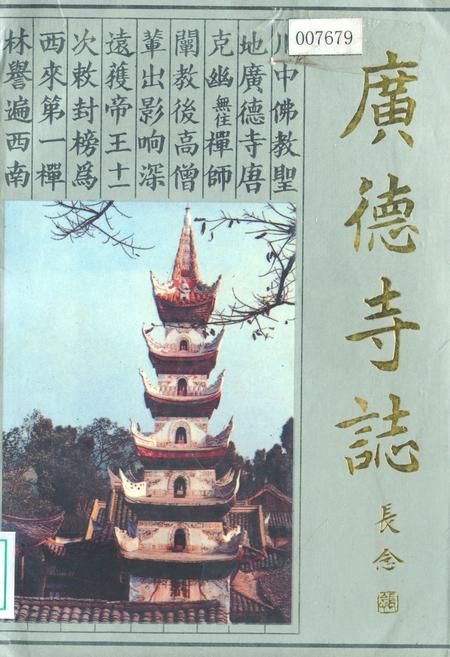 007679
廣德寺誌
長念
川中佛教聖
地廣德寺唐
克幽禪師
闡教後高僧
輩出影响深
遠獲帝王十一
次敕封榜爲
西來第一禪
林譽遍西南